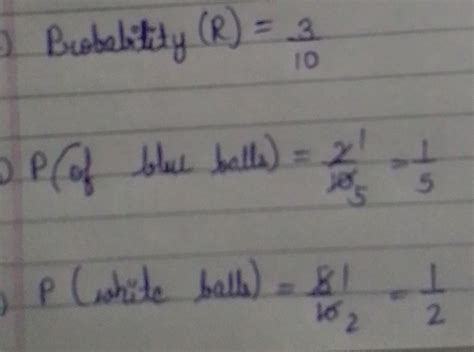 ) Probability (R) = 3/10
) P(of blue balls) = 2 1/10 5 = 1/5
) P (white balls) = 5 1/10 2 = 1/2